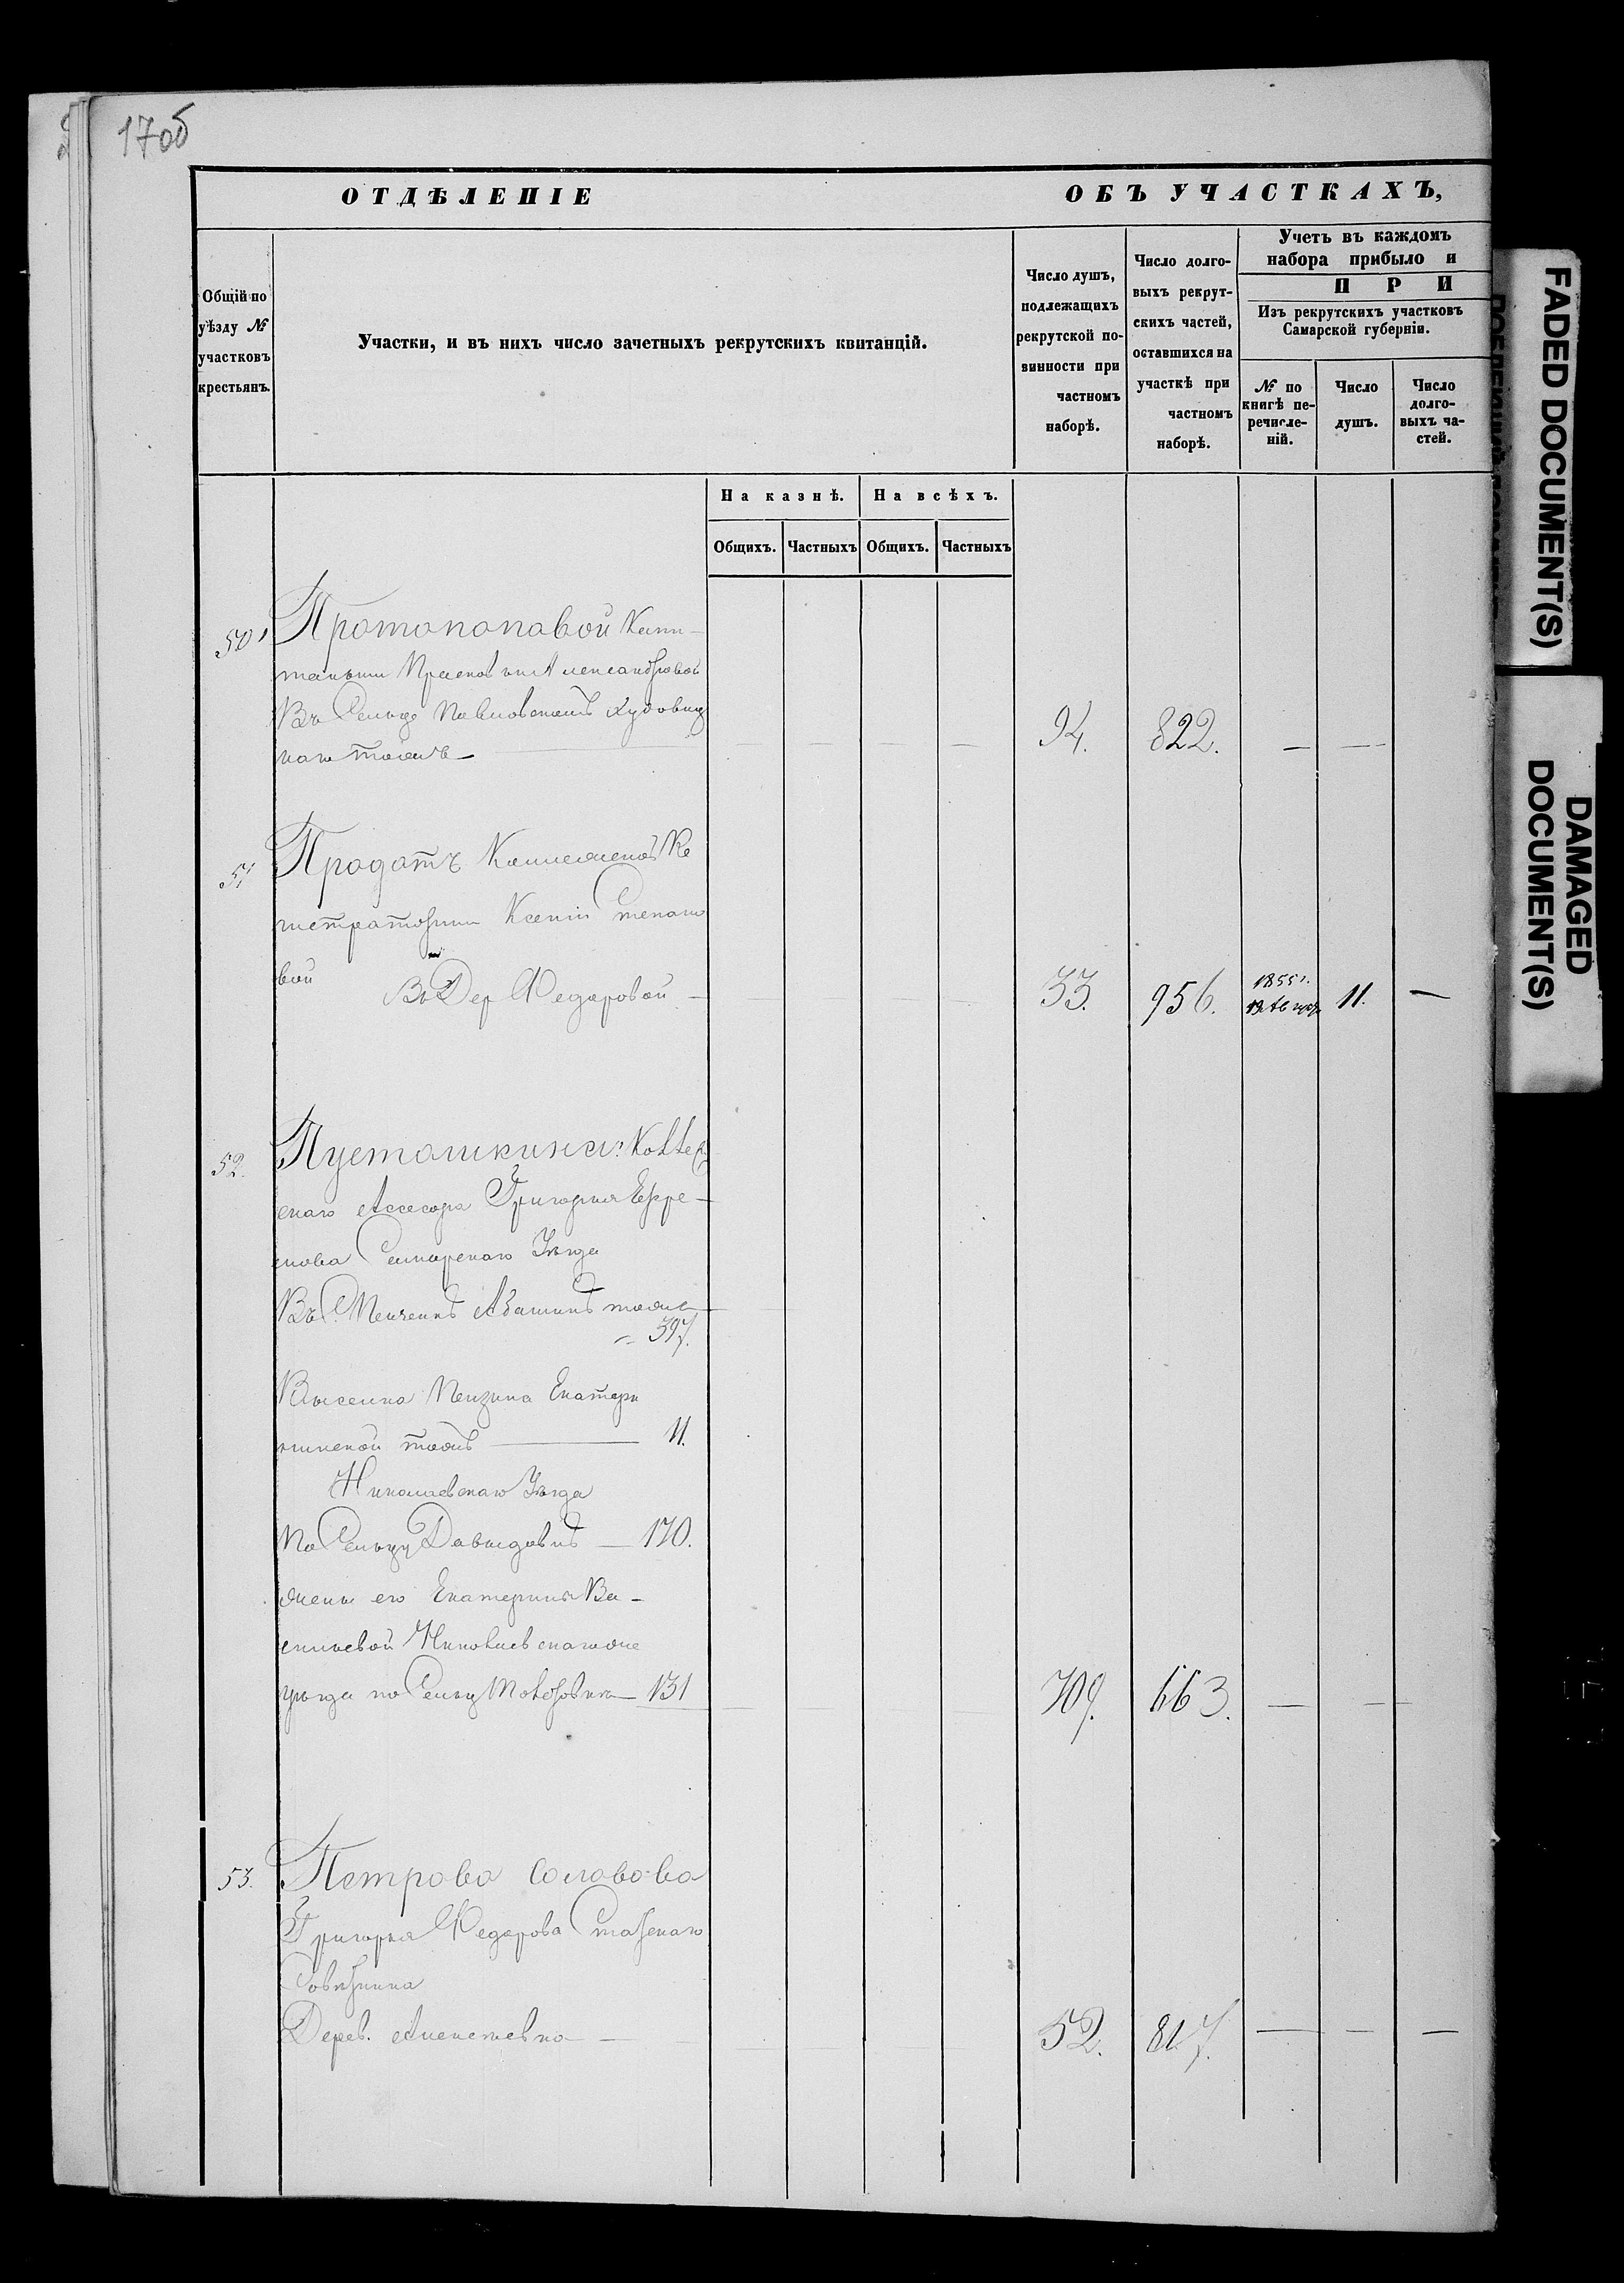 17об
ОТДѢЛЕНІЕ ОБЪ УЧАСТКАХЪ,
Общій по
уѣзду №
участковъ
крестьянъ.
Участки, и въ нихъ число зачетныхъ рекрутскихъ квитанцій.
Число душъ,
подлежащихъ
рекрутской по-
винности при
частномъ
наборѣ.
Число долго-
выхъ рекрут-
скихъ частей,
оставшихся на
участкѣ при
частномъ
наборѣ.
Учетъ въ каждомъ
набора прибыло и
ПРИ
Изъ рекрутскихъ участковъ
Самарской губерніи.
№ по
книгѣ пе-
речисле-
ній.
Число
душъ.
Число
долго-
выхъ ча-
стей.
На казнѣ. На всѣхъ.
Общихъ. Частныхъ Общихъ. Частныхъ
50 Протопоповой Капи-
танши Александровой
Въ Сельце
94. 822. — —
51 Продатъ Коллежской Ре
гистраторши Ксеніи Степано
вой
Въ Дер Федоровой —
33. 956. 1855 г. 11. —
52. Пусташкина: Коллеж
скаго Ассесора Григорья Ефре-
мова Самарскаго Уѣзда
Въ С.
397.
Выселка Пензина Екатери
нинской — 11.
Николаевскаго Уѣзда
По Сельцу Давыдовкѣ — 170.
жены его Екатерины Ва-
сильевой Николаевскаго же
уѣзда по Сельцу — 131
709. 663. — —
53. Петрово Соловово
Григорья Федорова Статскаго
Совѣтника
Дерев. Алексеевка —
52. 817. — — —
FADED DOCUMENT(S)
DAMAGED
DOCUMENT(S)